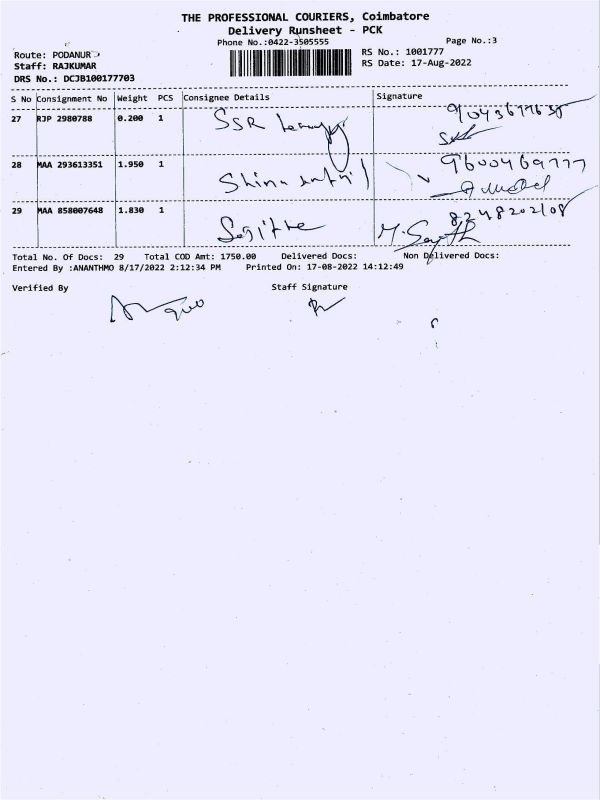 THE PROFESSIONAL COURIERS, Coimbatore
Delivery Runsheet - PCK
Phone No.:0422-3505555
Page No.:3
Route: PODANUR
RS No.: 1001777
Staff: RAJKUMAR
RS Date: 17-Aug-2022
DRS No.: DCJB100177703
S No Consignment No Weight PCS Consignee Details Signature
27 RJP 2980788 0.200 1 SSR
28 MAA 293613351 1.950 1 9600469777
29 MAA 858007648 1.830 1 8248202108
Total No. Of Docs: 29 Total COD Amt: 1750.00 Delivered Docs: Non Delivered Docs:
Entered By :ANANTHMO 8/17/2022 2:12:34 PM Printed On: 17-08-2022 14:12:49
Verified By Staff Signature